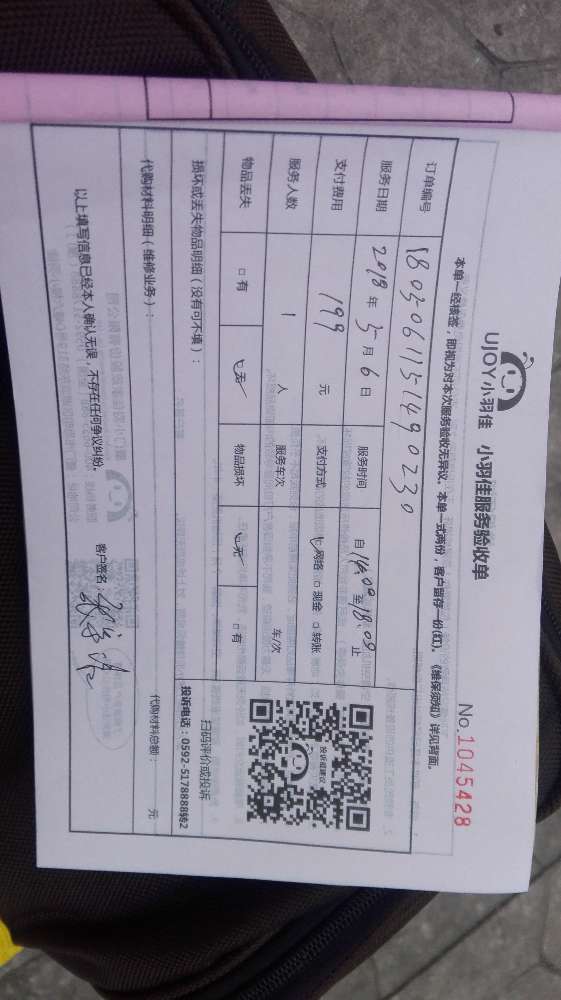 UJOY小羽佳 小羽佳服务验收单
No.1045428
本单一经接签，即视为对本次服务验收无异议。本单一式两份，客户留存一份(红)。《维保须知》详见背面。
订单编号 180306115490230
服务日期 2018年3月6日 服务时间 自14:09至18:09止
支付费用 199 元 支付方式 网络 □现金 □转账
服务人数 1 人 服务车次 车/次
物品丢失 □有 无 物品损坏 无 □有
投诉或建议
扫码评价或投诉
投诉电话：0592-5178888转2
损坏或丢失物品明细（没有可不填）：
代购材料明细（维修业务）：
代购材料总额： 元
以上填写信息已经本人确认无误，不存在任何争议纠纷.
客户签名: